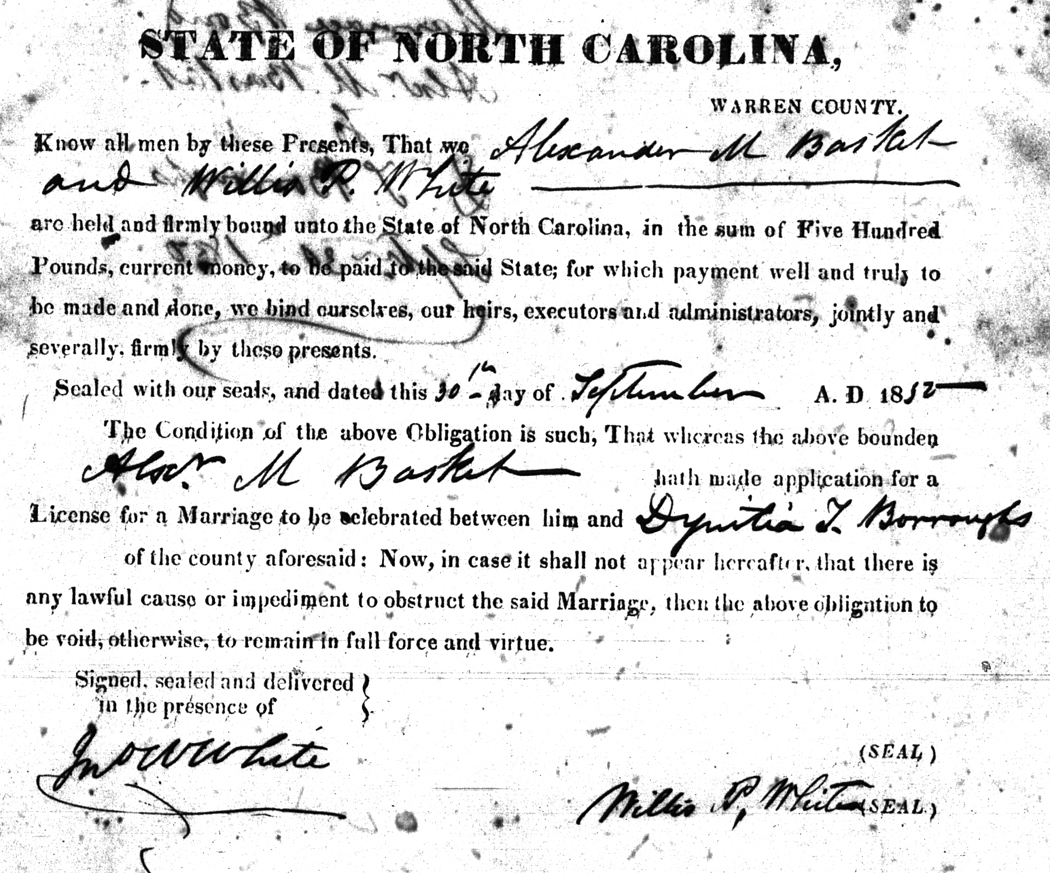 STATE OF NORTH CAROLINA,
WARREN COUNTY.
Know all men by these Presents, That we Alexander M Basket
and Willis P. White
are held and firmly bound unto the State of North Carolina, in the sum of Five Hundred
Pounds, current money, to be paid to the said State; for which payment well and truly to
be made and done, we bind ourselves, our heirs, executors and administrators, jointly and
severally, firmly by these presents.
Sealed with our seals, and dated this 30th day of September A. D 1852
The Condition of the above Obligation is such, That whereas the above bounden
Alexr. M Basket hath made application for a
License for a Marriage to be celebrated between him and T. Borroughs
of the county aforesaid: Now, in case it shall not appear hereafter, that there is
any lawful cause or impediment to obstruct the said Marriage, then the above obligation to
be void, otherwise, to remain in full force and virtue.
Signed, sealed and delivered
in the presence of
Jno W White
(SEAL)
Willis P. White (SEAL)